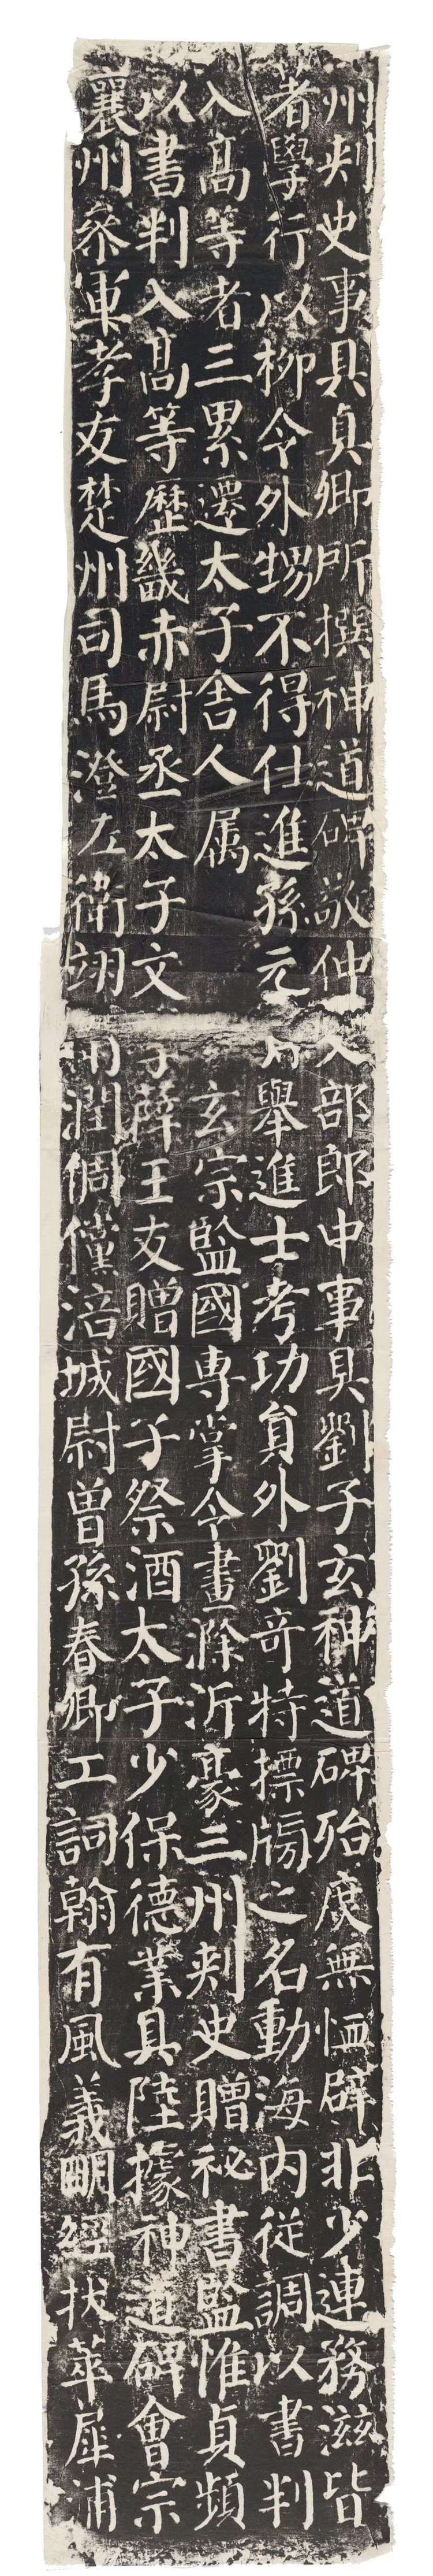 州刾史事具真卿所撰神道碑敬仲吏部郎中事具劉子玄神道碑殆庶無恤辟非少連務滋皆
著學行以柳令外甥不得仕進孫元孫舉進士考功員外劉奇特摽牓之名動海内從調以書判
入高等者三累遷太子舍人属玄宗監國專掌令畫滁沂豪三州刾史贈祕書監惟貞頻
以書判入高等歷畿赤尉丞太子文學薛王友贈國子祭酒太子少保德業具陸據神道碑會宗
襄州叅軍孝友楚州司馬澄左衛翊衛潤倜儻涪城尉曽孫春卿工詞翰有風義明經拔萃犀浦